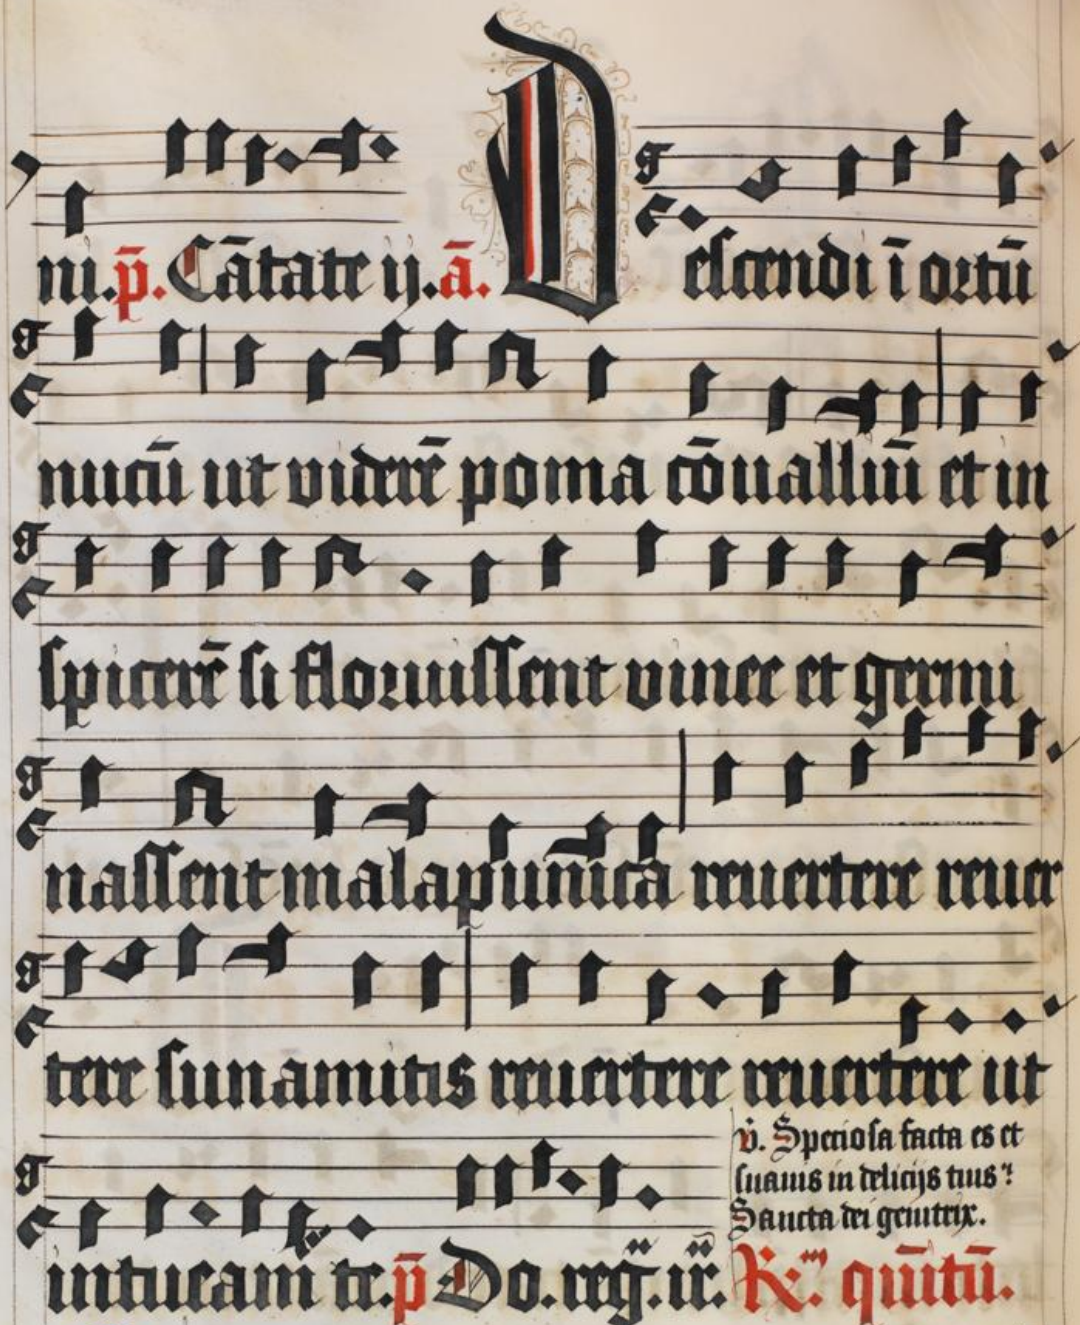 ni. p̄. Cātate ij. ā. Descendi ī ortū
nucū ut viderē poma cōualliū et in
spicerē si floruissent vinee et germi
nassent mala punica reuertere reuer
tere sunamitis reuertere reuertere ut
v̄. Speciosa facta es et
suauis in delicijs tuis
Sancta dei genitrix.
intueam̄ te. p̄ Do. reg̈. ir̈. R: quītū.